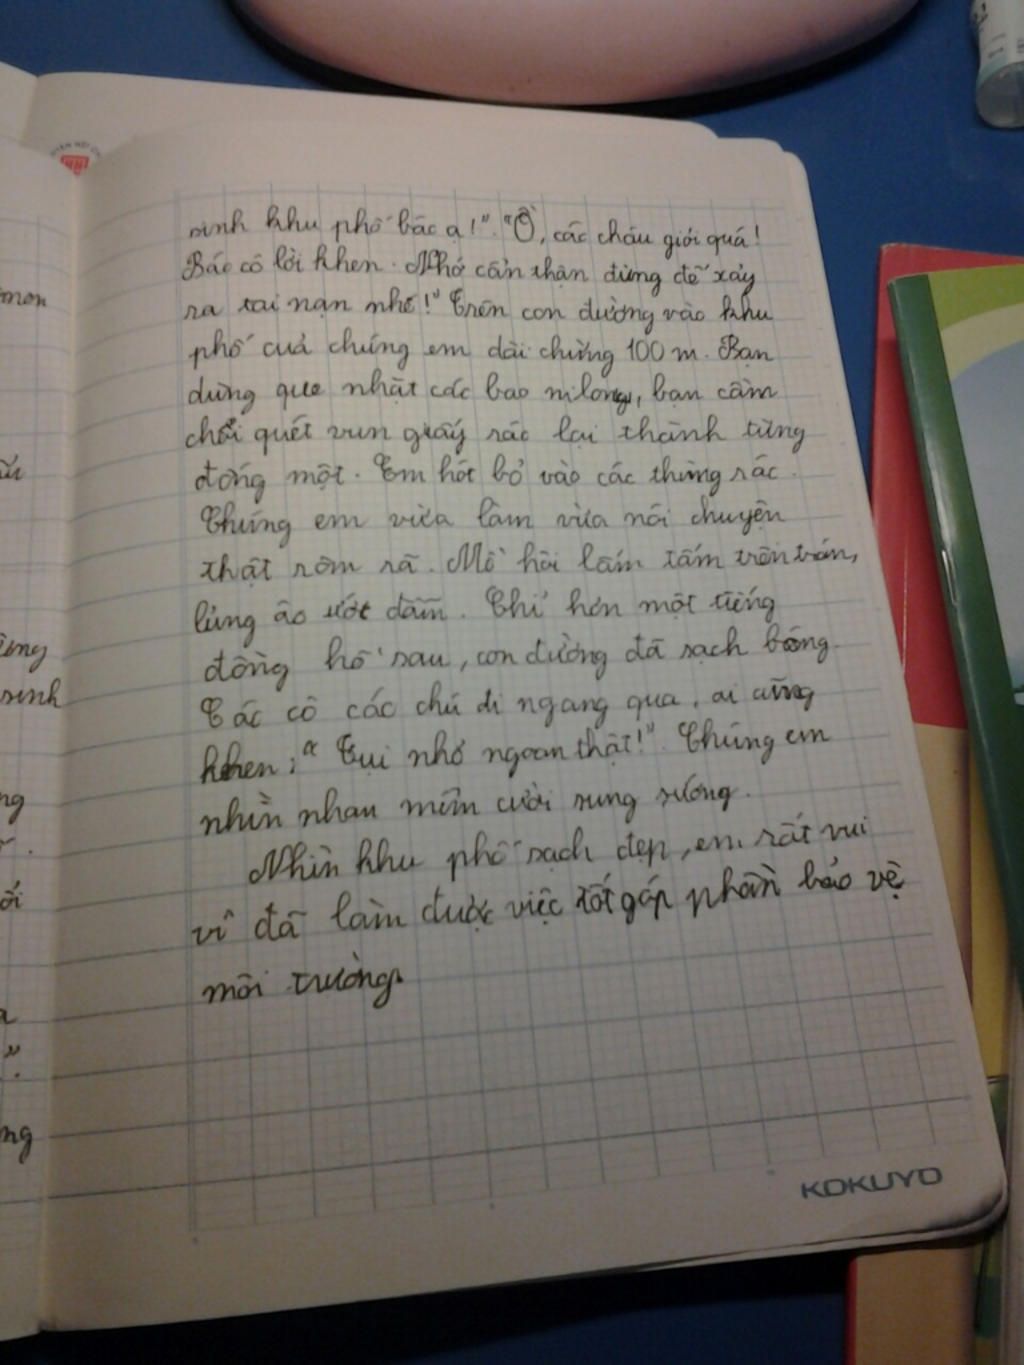 sinh khu phố bác ạ!". "Ồ, các cháu giỏi quá!
Bác có lời khen. Nhớ cẩn thận đừng để xảy
ra tai nạn nhé!" Trên con đường vào khu
phố của chúng em dài chừng 100 m. Bạn
dùng que nhặt các bao nilong, bạn cầm
chổi quét vun giấy rác lại thành từng
đống một. Em hót bỏ vào các thùng rác.
Chúng em vừa làm vừa nói chuyện
thật rôm rả. Mồ hôi lấm tấm trên trán,
lưng áo ướt đẫm. Chỉ hơn một tiếng
đồng hồ sau, con đường đã sạch bóng.
Các cô các chú đi ngang qua, ai cũng
khen: "Tụi nhỏ ngoan thật!". Chúng em
nhìn nhau mỉm cười sung sướng.
Nhìn khu phố sạch đẹp, em rất vui
vì đã làm được việc tốt góp phần bảo vệ
môi trường.
KOKUYO
mon
ừng
sinh
ng
ối
a
ng